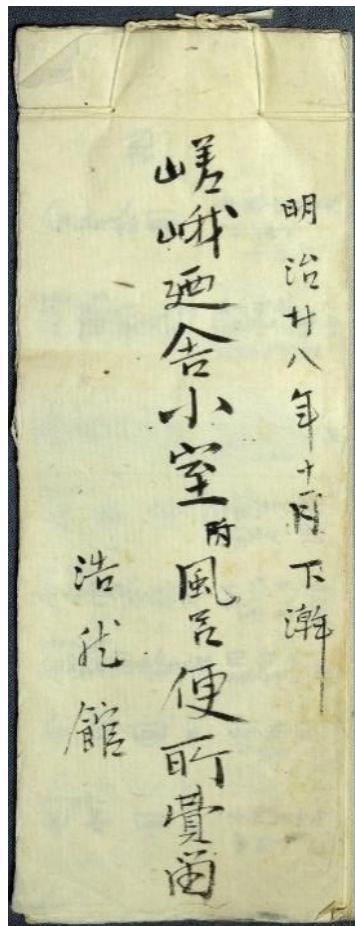 明治廿八年十一月下澣
嵯峨廼舎小室附風呂便所費留
浩然館